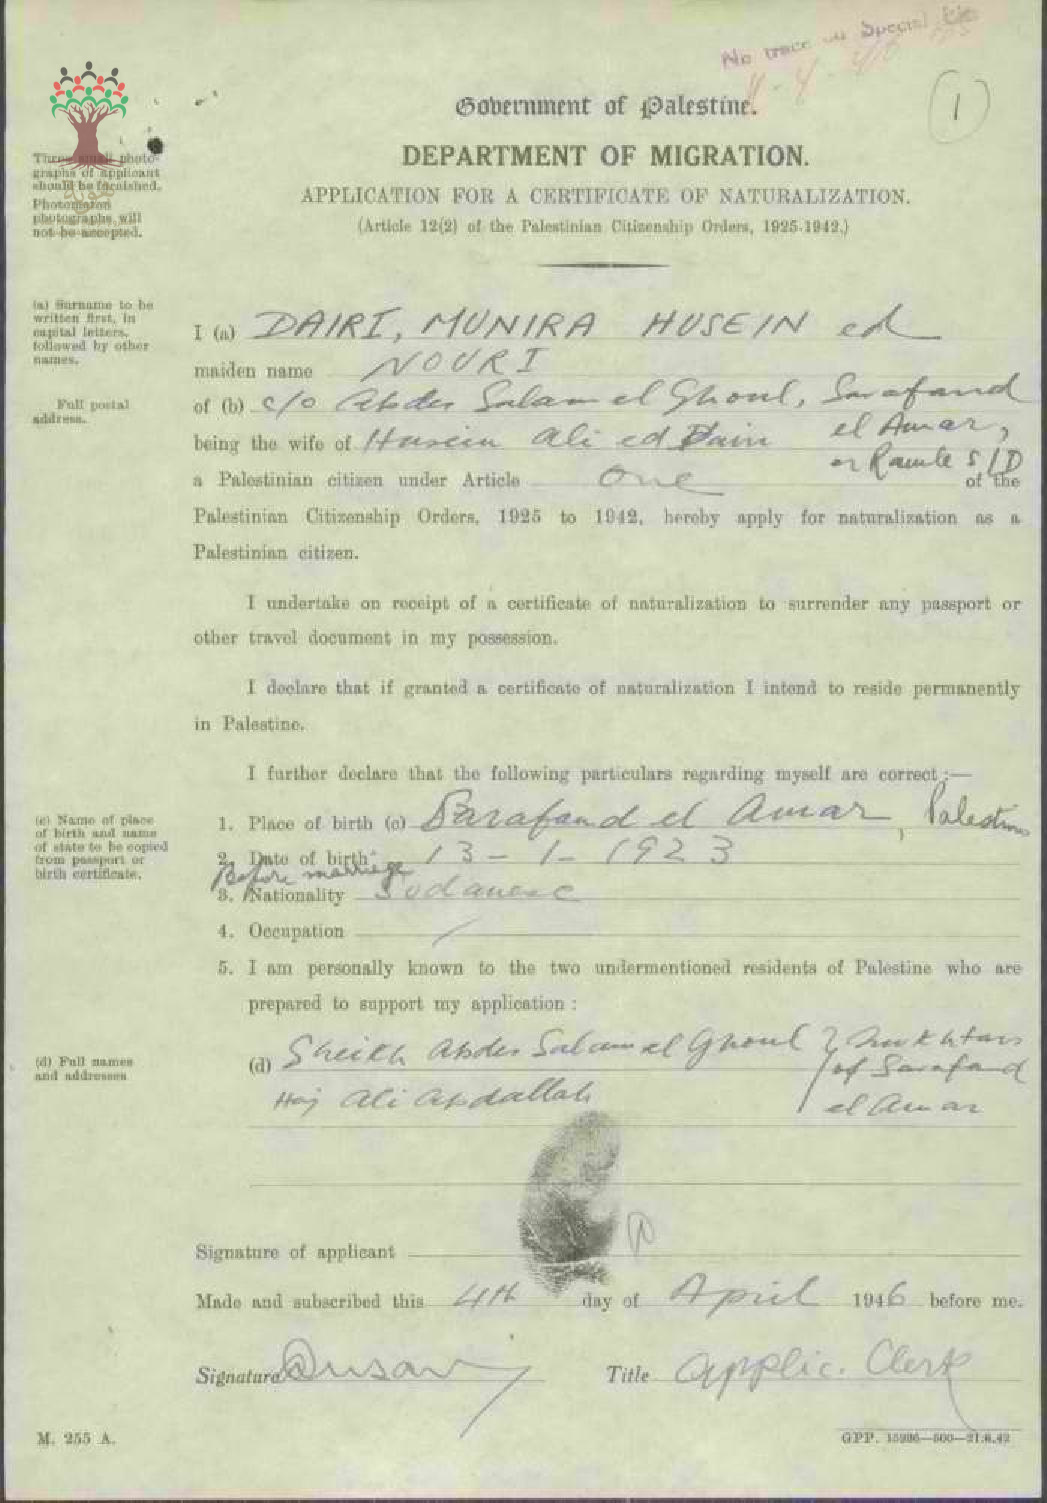 No trace in Special
1
Government of Palestine.
DEPARTMENT OF MIGRATION.
APPLICATION FOR A CERTIFICATE OF NATURALIZATION.
(Article 12(2) of the Palestinian Citizenship Orders, 1925-1942.)
Three small photo-
graphs of applicant
should be furnished.
Photomaton
photographs will
not be accepted.
(a) Surname to be
written first, in
capital letters,
followed by other
names.
I (a) DAIRI, MUNIRA HUSEIN ed
maiden name NOURI
Full postal
address.
of (b) c/o Abdes Salam el Ghoul, Sarafand
being the wife of Husein Ali ed Dairi el Amar,
nr Ramle S/D
a Palestinian citizen under Article One of the
Palestinian Citizenship Orders, 1925 to 1942, hereby apply for naturalization as a
Palestinian citizen.
I undertake on receipt of a certificate of naturalization to surrender any passport or
other travel document in my possession.
I declare that if granted a certificate of naturalization I intend to reside permanently
in Palestine.
I further declare that the following particulars regarding myself are correct :—
(c) Name of place
of birth and name
of state to be copied
from passport or
birth certificate.
1. Place of birth (c) Sarafand el Amar, Palestine
2. Date of birth 13-1-1923
Before marriage
3. Nationality Sudanese
4. Occupation /
5. I am personally known to the two undermentioned residents of Palestine who are
prepared to support my application :
(d) Full names
and addresses
(d) Sheikh Abdes Salam el Ghoul } Mukhtars
of Sarafand
Haj Ali Abdallah el Amar
Signature of applicant
Made and subscribed this 4th day of April 1946 before me.
Signature Title Applic. Clerk
M. 255 A.
GPP. 15986—500—21.6.42